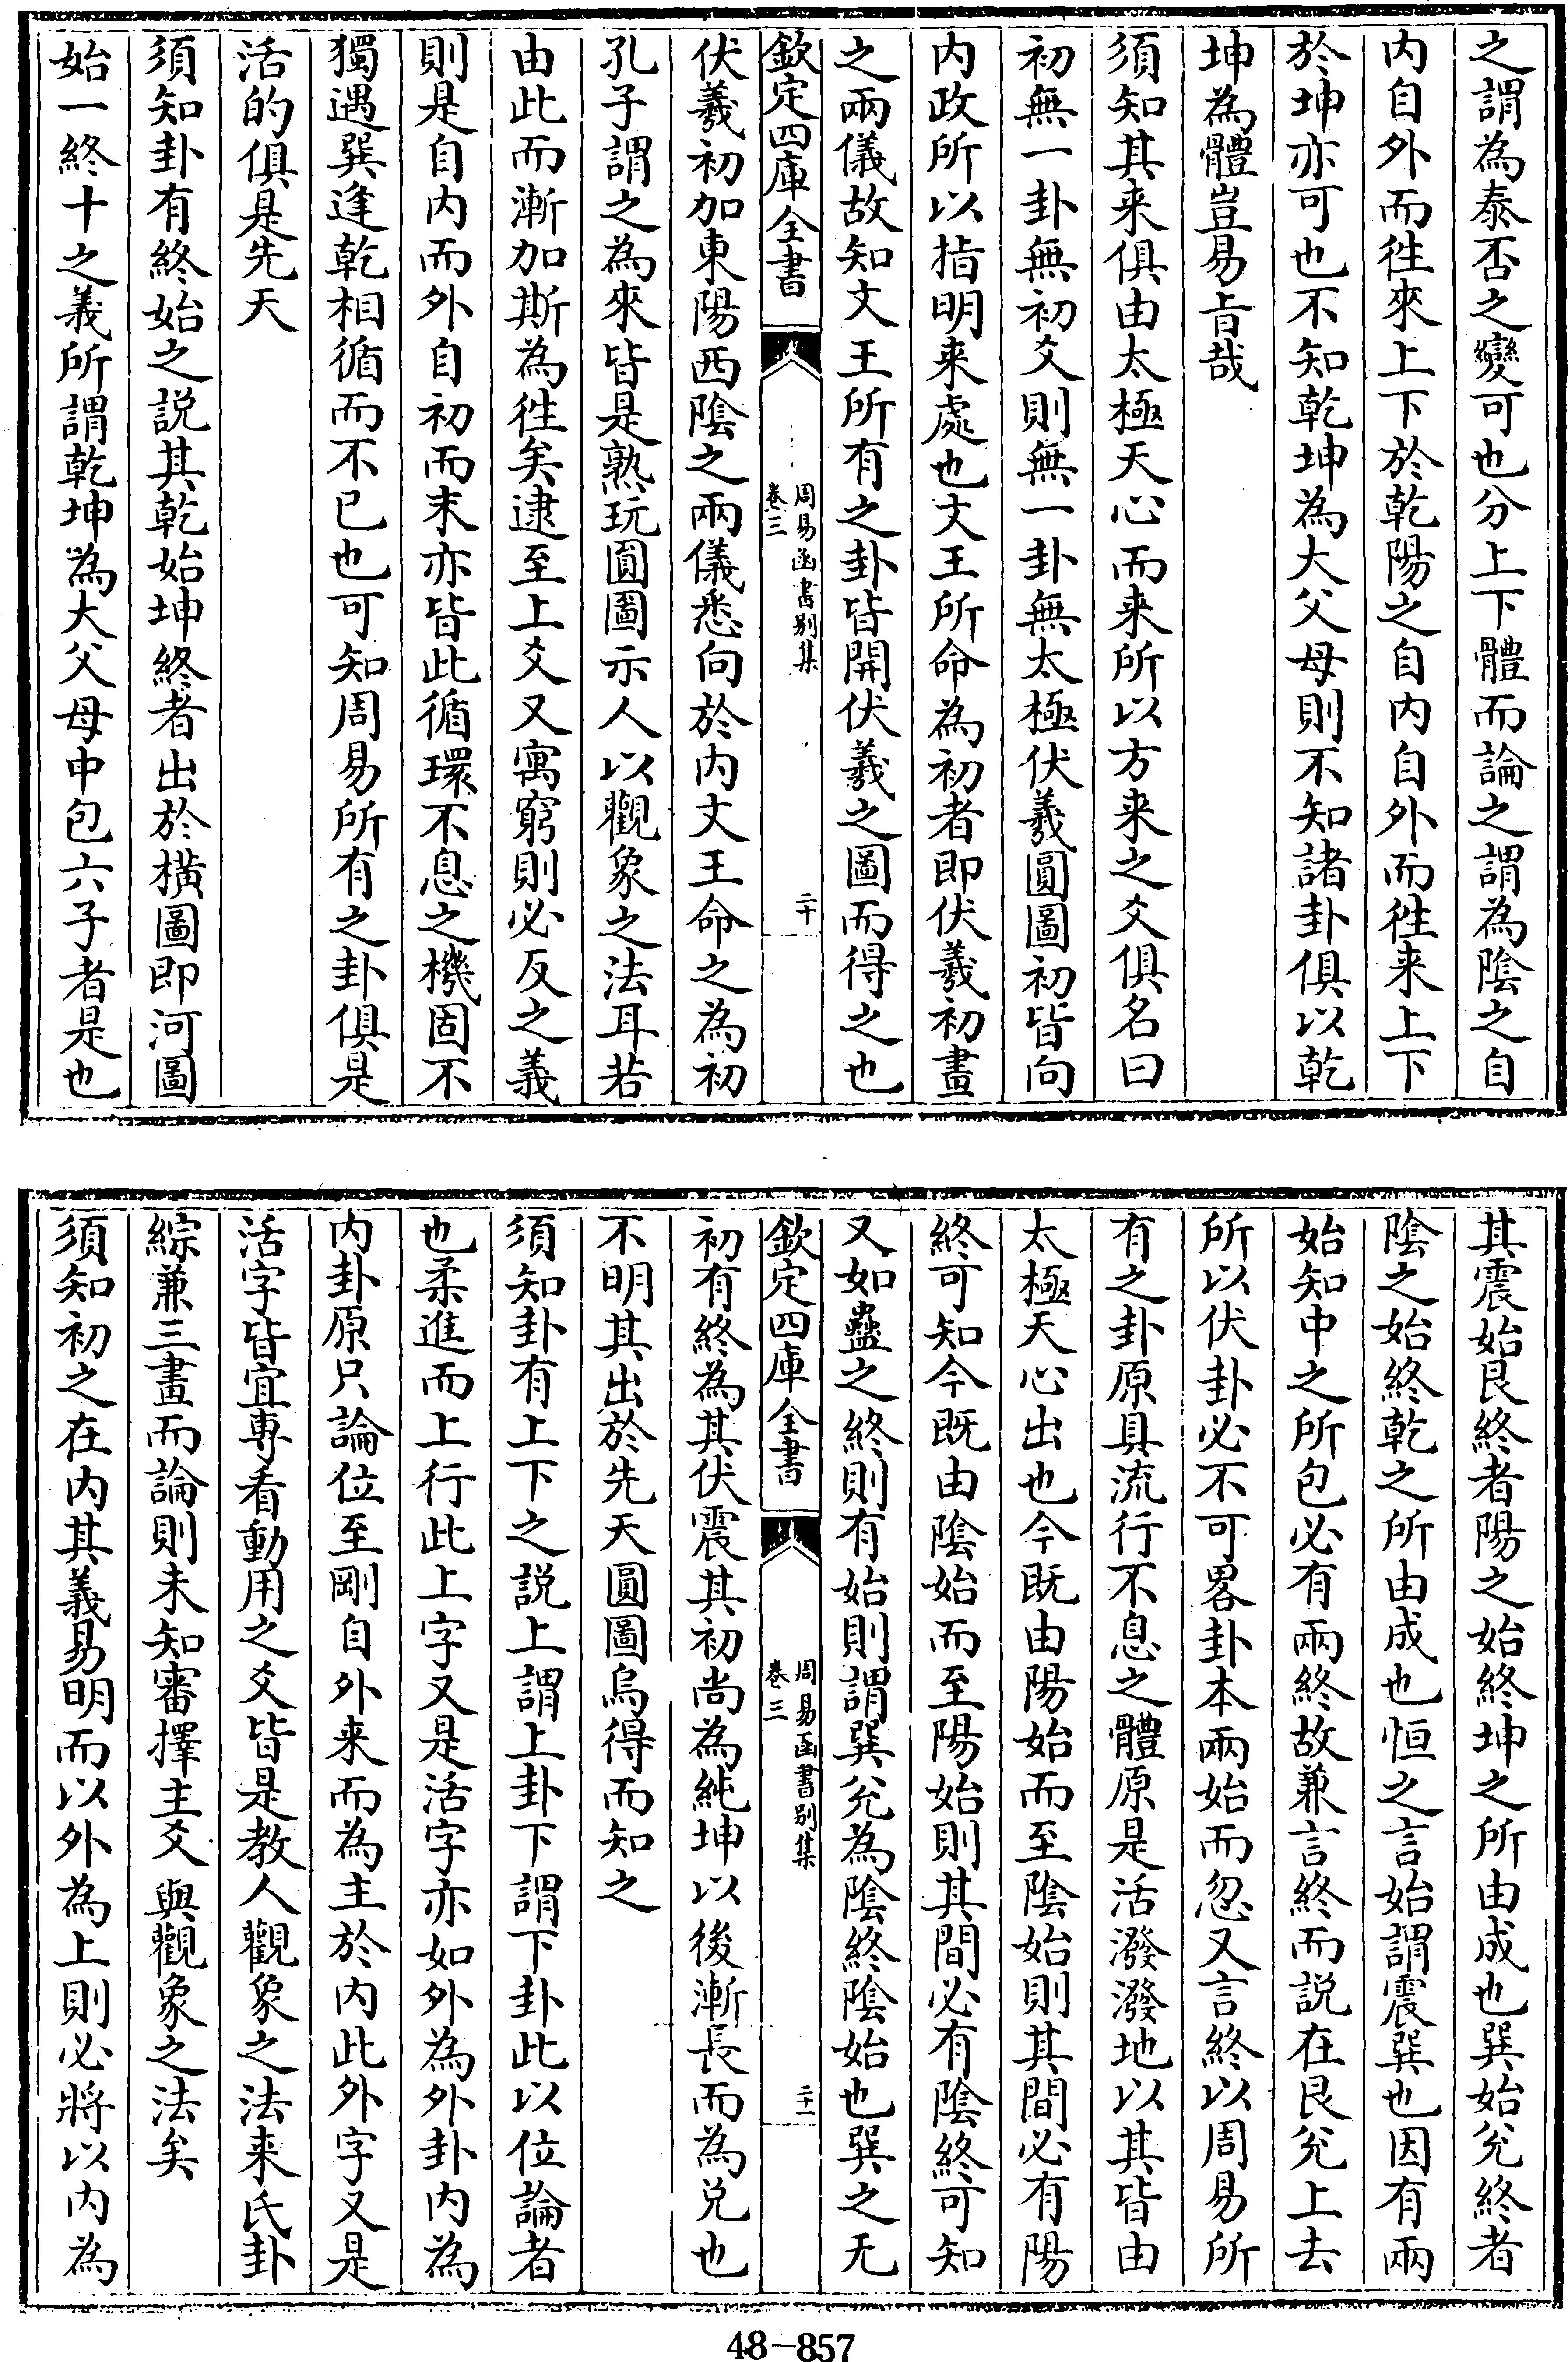 之謂為泰否之變可也分上下體而論之謂為陰之自
内自外而徃來上下於乾陽之自内自外而徃来上下
於坤亦可也不知乾坤為大父母則不知諸卦俱以乾
坤為體豈易旨哉
須知其来俱由太極天心而来所以方来之爻俱名曰
初無一卦無初爻則無一卦無太極伏羲圓圖初皆向
内政所以指明来處也文王所命為初者即伏羲初畫
之兩儀故知文王所有之卦皆開伏羲之圖而得之也
欽定四庫全書
周易函書别集
卷三
二十
伏羲初加東陽西陰之兩儀悉向於内文王命之為初
孔子謂之為來皆是熟玩圓圖示人以觀象之法耳若
由此而漸加斯為徃矣逮至上爻又寓窮則必反之義
則是自内而外自初而末亦皆此循環不息之機固不
獨遇巽逢乾相循而不已也可知周易所有之卦俱是
活的俱是先天
須知卦有終始之説其乾始坤終者出於橫圖即河圖
始一終十之義所謂乾坤為大父母中包六子者是也
其震始艮終者陽之始終坤之所由成也巽始兊終者
陰之始終乾之所由成也恒之言始謂震巽也因有兩
始知中之所包必有兩終故兼言終而説在艮兊上去
所以伏卦必不可畧卦本兩始而忽又言終以周易所
有之卦原具流行不息之體原是活潑潑地以其皆由
太極天心出也今既由陽始而至陰始則其間必有陽
終可知今既由陰始而至陽始則其間必有陰終可知
又如蠱之終則有始則謂巽兊為陰終陰始也巽之无
欽定四庫全書
周易函書别集
卷三
二十一
初有終為其伏震其初尚為純坤以後漸長而為兑也
不明其出於先天圓圖烏得而知之
須知卦有上下之説上謂上卦下謂下卦此以位論者
也柔進而上行此上字又是活字亦如外為外卦内為
内卦原只論位至剛自外来而為主於内此外字又是
活字皆宜專看動用之爻皆是教人觀象之法来氏卦
綜兼三畫而論則未知審擇主爻與觀象之法矣
須知初之在内其義易明而以外為上則必將以内為
48-857